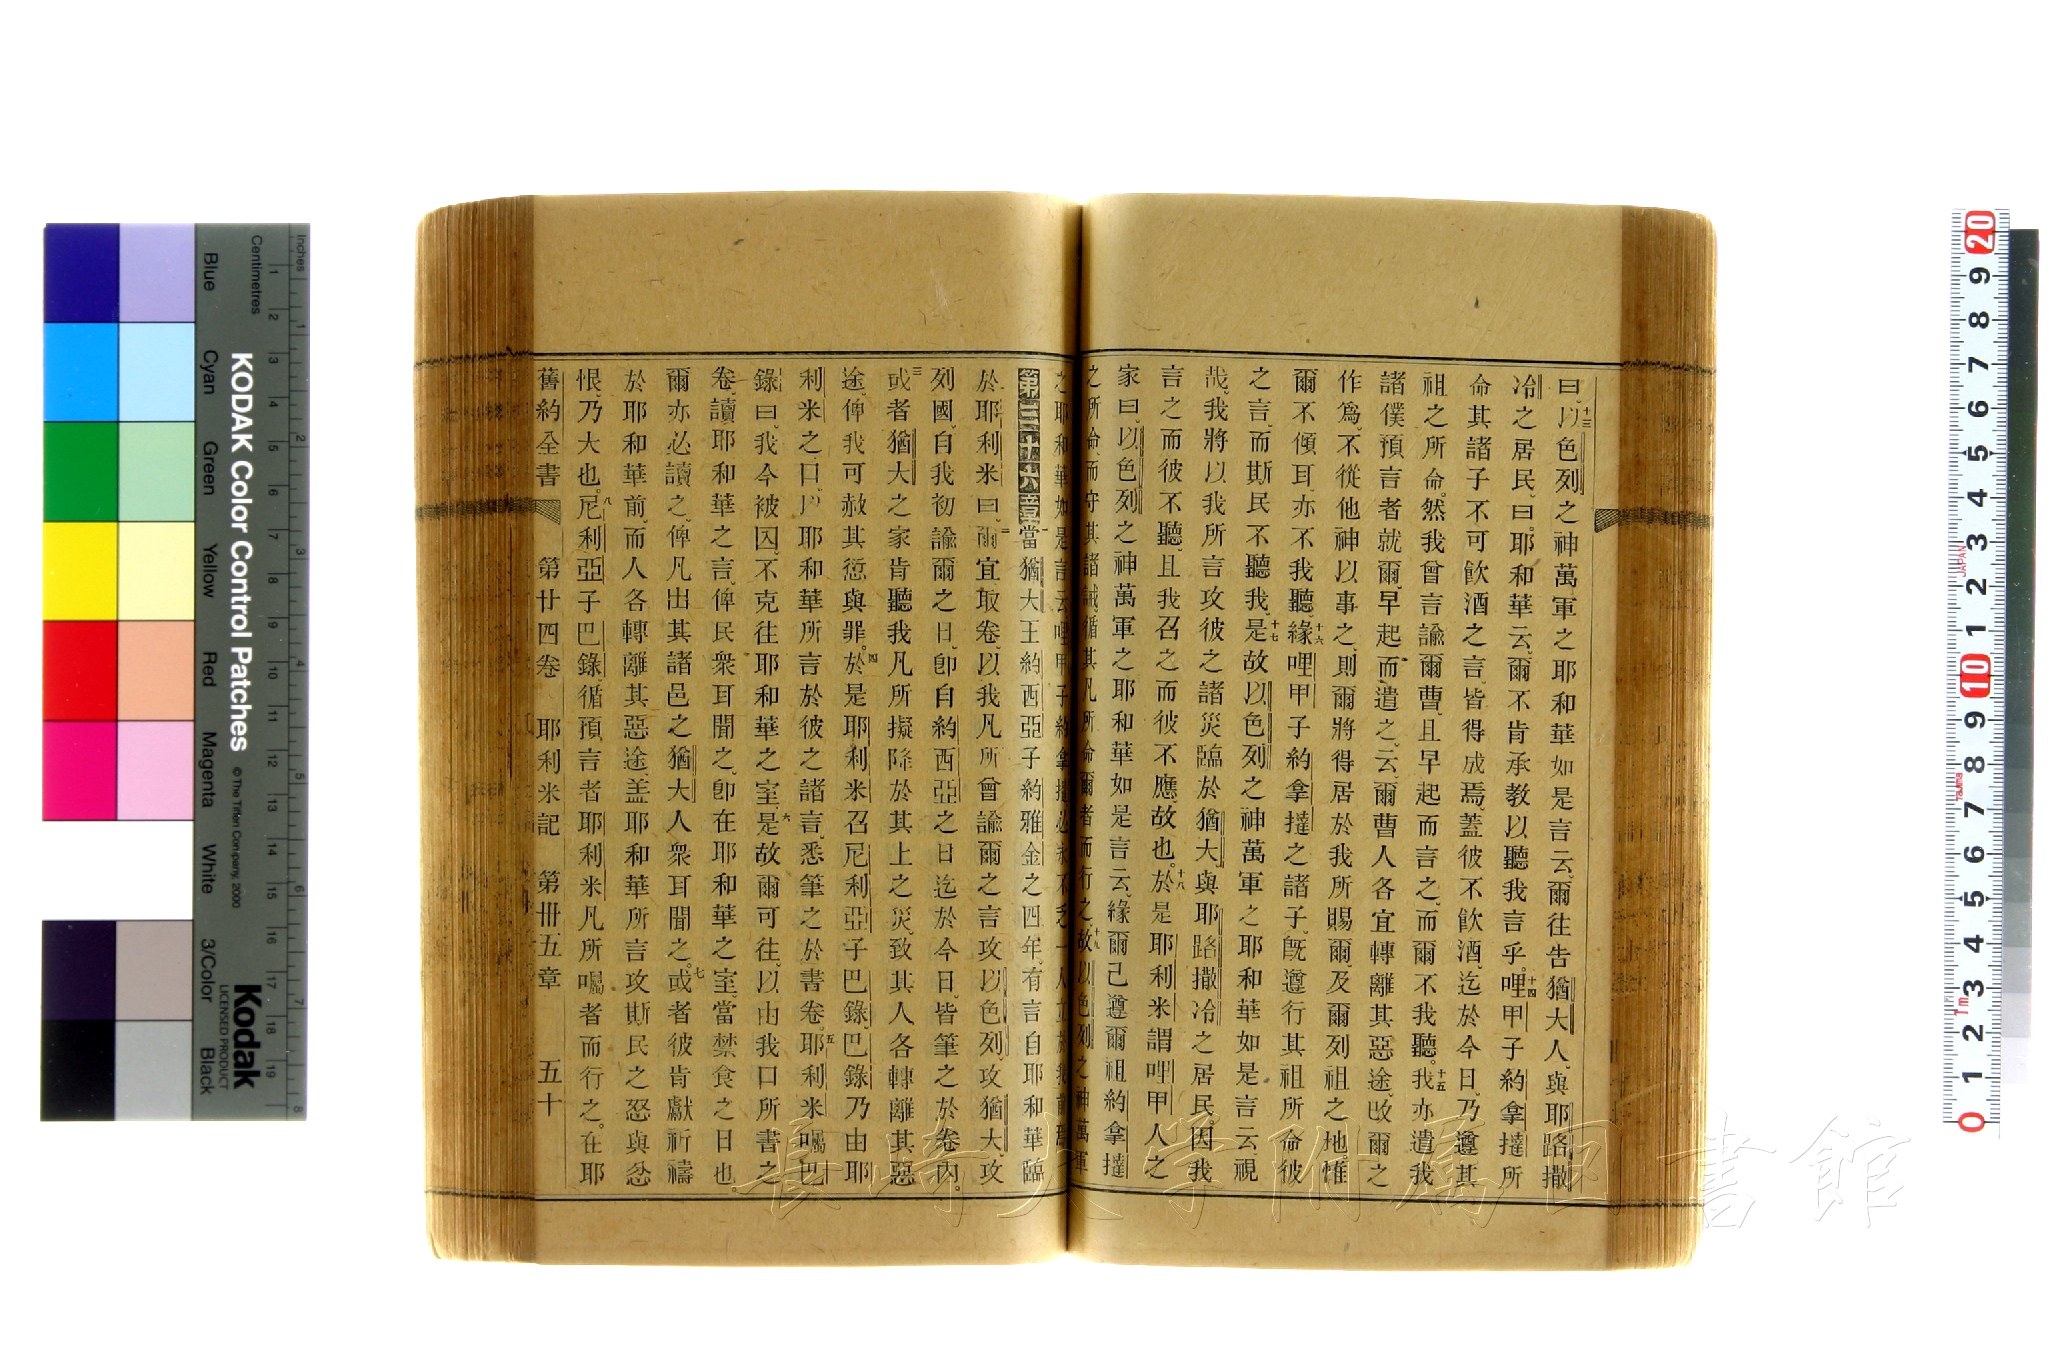 曰、十三以色列之神萬軍之耶和華如是言云、爾往告猶大人、與耶路撒
冷之居民、曰、耶和華云、爾不肯承教以聽我言乎。十四哩甲子約拿撻所
命其諸子不可飲酒之言、皆得成焉、蓋彼不飲酒、迄於今日、乃遵其
祖之所命。然我曾言諭爾曹、且早起而言之、而爾不我聽。十五我亦遣我
諸僕預言者就爾、早起而遣之、云、爾曹人各宜轉離其惡途、改爾之
作爲、不從他神以事之、則爾將得居於我所賜爾、及爾列祖之地、惟
爾不傾耳、亦不我聽、十六緣哩甲子約拿撻之諸子、旣遵行其祖所命彼
之言、而斯民不聽我、十七是故以色列之神萬軍之耶和華如是言云、視
哉、我將以我所言攻彼之諸災臨於猶大、與耶路撒冷之居民、因我
言之而彼不聽、且我召之而彼不應、故也。十八於是耶利米謂哩甲人之
家曰、以色列之神萬軍之耶和華如是言云、緣爾已遵爾祖約拿撻
之所命、而守其諸誡、循其凡所命爾者而行之、十九故以色列之神萬軍
之耶和華如是言云、哩甲子約拿撻必永不乏一人立於我前焉
第三十六章 一當猶大王約西亞子約雅金之四年、有言自耶和華臨
於耶利米曰、二爾宜取卷、以我凡所曾諭爾之言攻以色列、攻猶大、攻
列國、自我初諭爾之日、卽自約西亞之日迄於今日、皆筆之於卷內。
三或者猶大之家肯聽我凡所擬降於其上之災、致其人各轉離其惡
途、俾我可赦其愆與罪。四於是耶利米召尼利亞子巴錄、巴錄乃由耶
利米之口、以耶和華所言於彼之諸言、悉筆之於書卷。五耶利米囑巴
錄曰、我今被囚、不克往耶和華之室、六是故爾可往、以由我口所書之
卷、讀耶和華之言、俾民衆耳聞之、卽在耶和華之室、當禁食之日也、
爾亦必讀之、俾凡出其諸邑之猶大人衆耳聞之、七或者彼肯獻祈禱
於耶和華前、而人各轉離其惡途、盖耶和華所言攻斯民之怒與忿
恨、乃大也。八尼利亞子巴錄循預言者耶利米凡所囑者而行之、在耶
舊約全書 第廿四卷 耶利米記 第卅五章 五十
KODAK Color Control Patches
©The Tiffen Company, 2000
Kodak
LICENSED PRODUCT
Inches
Centimetres
Blue Cyan Green Yellow Red Magenta White 3/Color Black
1 2 3 4 5 6 7 8 9 10 11 12 13 14 15 16 17 18 19
1 2 3 4 5 6 7 8
20 9 8 7 6 5 4 3 2 1 10 9 8 7 6 5 4 3 2 1 0
JAPAN
Tajima
1m
長崎大学附属図書館